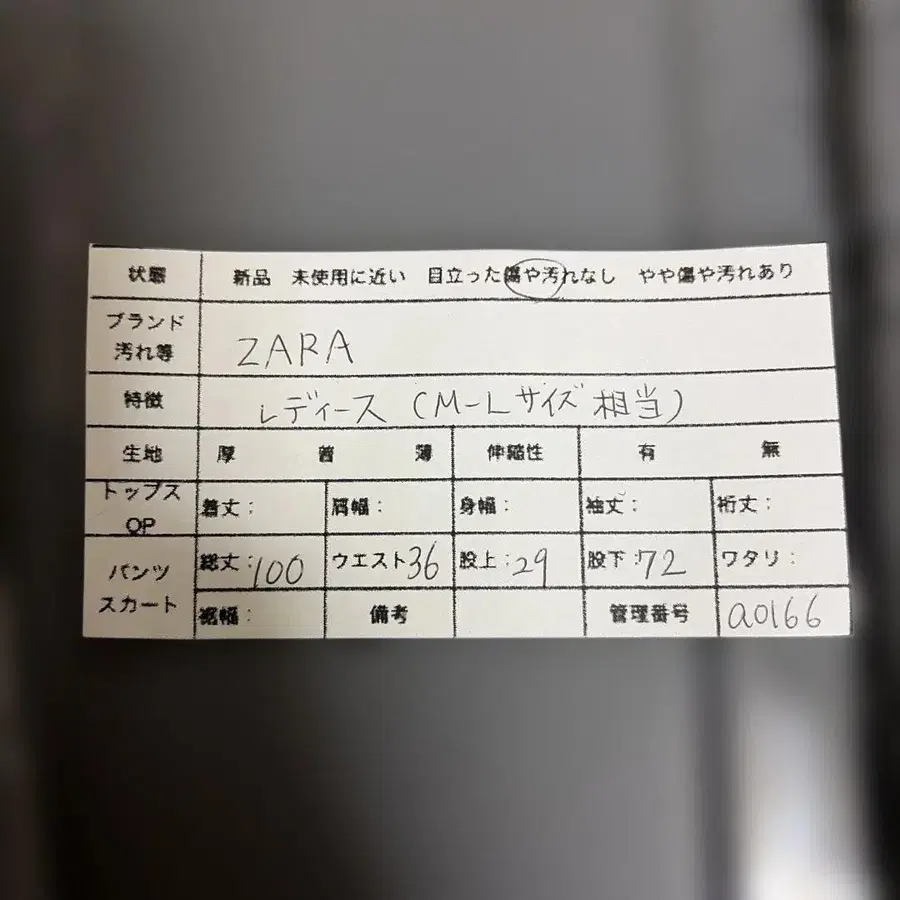 状態 新品 未使用に近い 目立った傷や汚れなし やや傷や汚れあり
ブランド
汚れ等
ZARA
特徴 レディース (M-Lサイズ相当)
生地 厚 普 薄 伸縮性 有 無
トップス
OP
着丈: 肩幅: 身幅: 袖丈: 裄丈:
パンツ
スカート
総丈:100 ウエスト36 股上:29 股下:72 ワタリ:
裾幅: 備考 管理番号 a0166